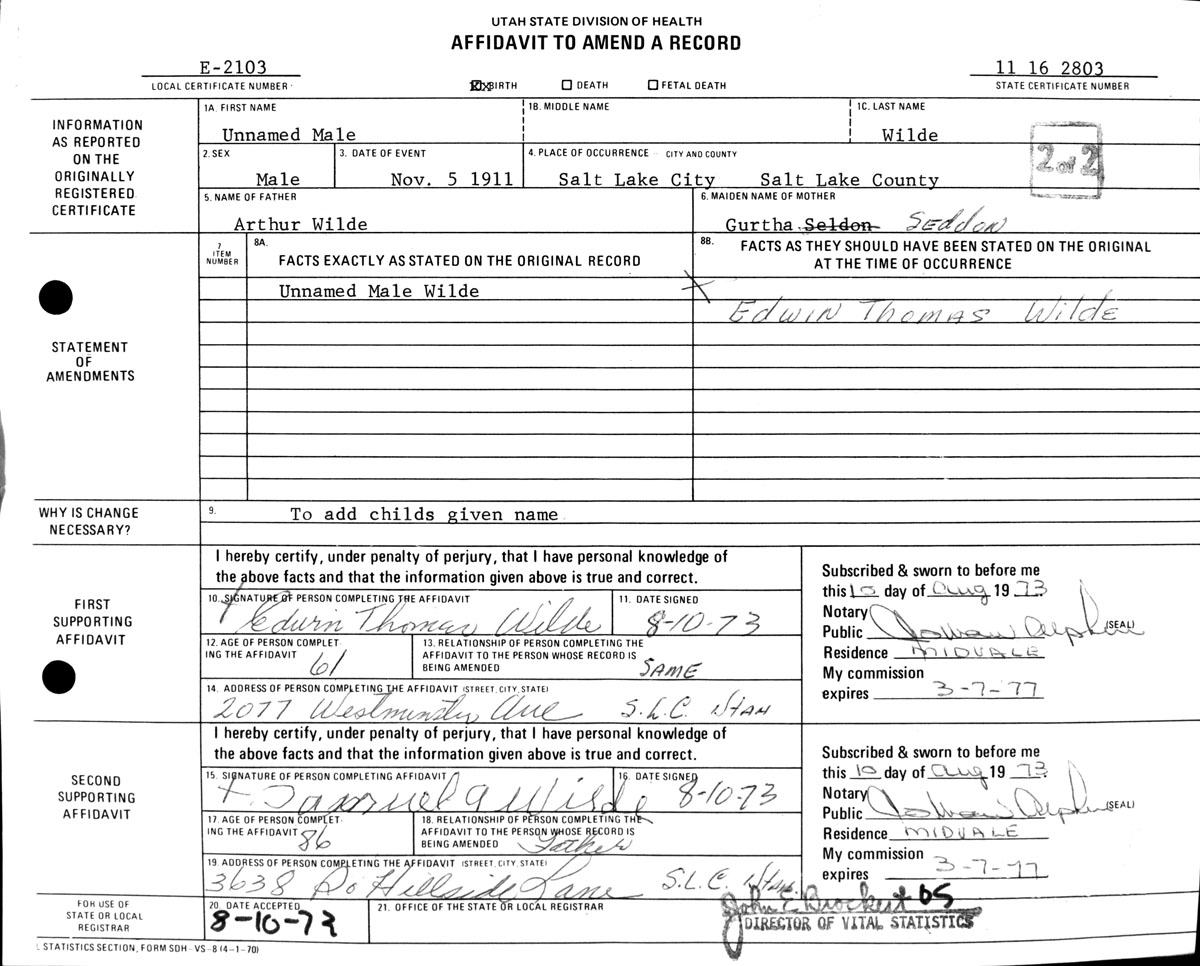 UTAH STATE DIVISION OF HEALTH
AFFIDAVIT TO AMEND A RECORD
E-2103
11 16 2803
LOCAL CERTIFICATE NUMBER
BIRTH
DEATH
FETAL DEATH
STATE CERTIFICATE NUMBER
INFORMATION
AS REPORTED
ON THE
ORIGINALLY
REGISTERED
CERTIFICATE
1A. FIRST NAME
1B. MIDDLE NAME
1C. LAST NAME
Unnamed Male
Wilde
2 of 2
2. SEX
3. DATE OF EVENT
4. PLACE OF OCCURRENCE CITY AND COUNTY
Male
Nov. 5 1911
Salt Lake City Salt Lake County
5. NAME OF FATHER
6. MAIDEN NAME OF MOTHER
Arthur Wilde
Gurtha Seldon SEDDON
STATEMENT
OF
AMENDMENTS
7
ITEM
NUMBER
8A.
FACTS EXACTLY AS STATED ON THE ORIGINAL RECORD
8B.
FACTS AS THEY SHOULD HAVE BEEN STATED ON THE ORIGINAL
AT THE TIME OF OCCURRENCE
Unnamed Male Wilde
Edwin Thomas Wilde
WHY IS CHANGE
NECESSARY?
9.
To add childs given name
FIRST
SUPPORTING
AFFIDAVIT
I hereby certify, under penalty of perjury, that I have personal knowledge of
the above facts and that the information given above is true and correct.
10. SIGNATURE OF PERSON COMPLETING THE AFFIDAVIT
11. DATE SIGNED
Edwin Thomas Wilde
8-10-73
12. AGE OF PERSON COMPLET
ING THE AFFIDAVIT 61
13. RELATIONSHIP OF PERSON COMPLETING THE
AFFIDAVIT TO THE PERSON WHOSE RECORD IS
BEING AMENDED SAME
14. ADDRESS OF PERSON COMPLETING THE AFFIDAVIT (STREET, CITY, STATE)
2077 Westminster Ave S.L.C. Utah
Subscribed & sworn to before me
this 10 day of Aug 19 73
Notary
Public (SEAL)
Residence MIDVALE
My commission
expires 3-7-77
SECOND
SUPPORTING
AFFIDAVIT
I hereby certify, under penalty of perjury, that I have personal knowledge of
the above facts and that the information given above is true and correct.
15. SIGNATURE OF PERSON COMPLETING AFFIDAVIT
16. DATE SIGNED
Samuel A Wilde
8-10-73
17. AGE OF PERSON COMPLET
ING THE AFFIDAVIT 86
18. RELATIONSHIP OF PERSON COMPLETING THE
AFFIDAVIT TO THE PERSON WHOSE RECORD IS
BEING AMENDED Father
19. ADDRESS OF PERSON COMPLETING THE AFFIDAVIT (STREET, CITY, STATE)
3638 So Hillside Lane S.L.C. Utah
Subscribed & sworn to before me
this 10 day of Aug 19 73
Notary
Public (SEAL)
Residence MIDVALE
My commission
expires 3-7-77
FOR USE OF
STATE OR LOCAL
REGISTRAR
20. DATE ACCEPTED
8-10-73
21. OFFICE OF THE STATE OR LOCAL REGISTRAR
John E Brockert DS
DIRECTOR OF VITAL STATISTICS
STATISTICS SECTION, FORM SDH-VS-8 (4-1-70)